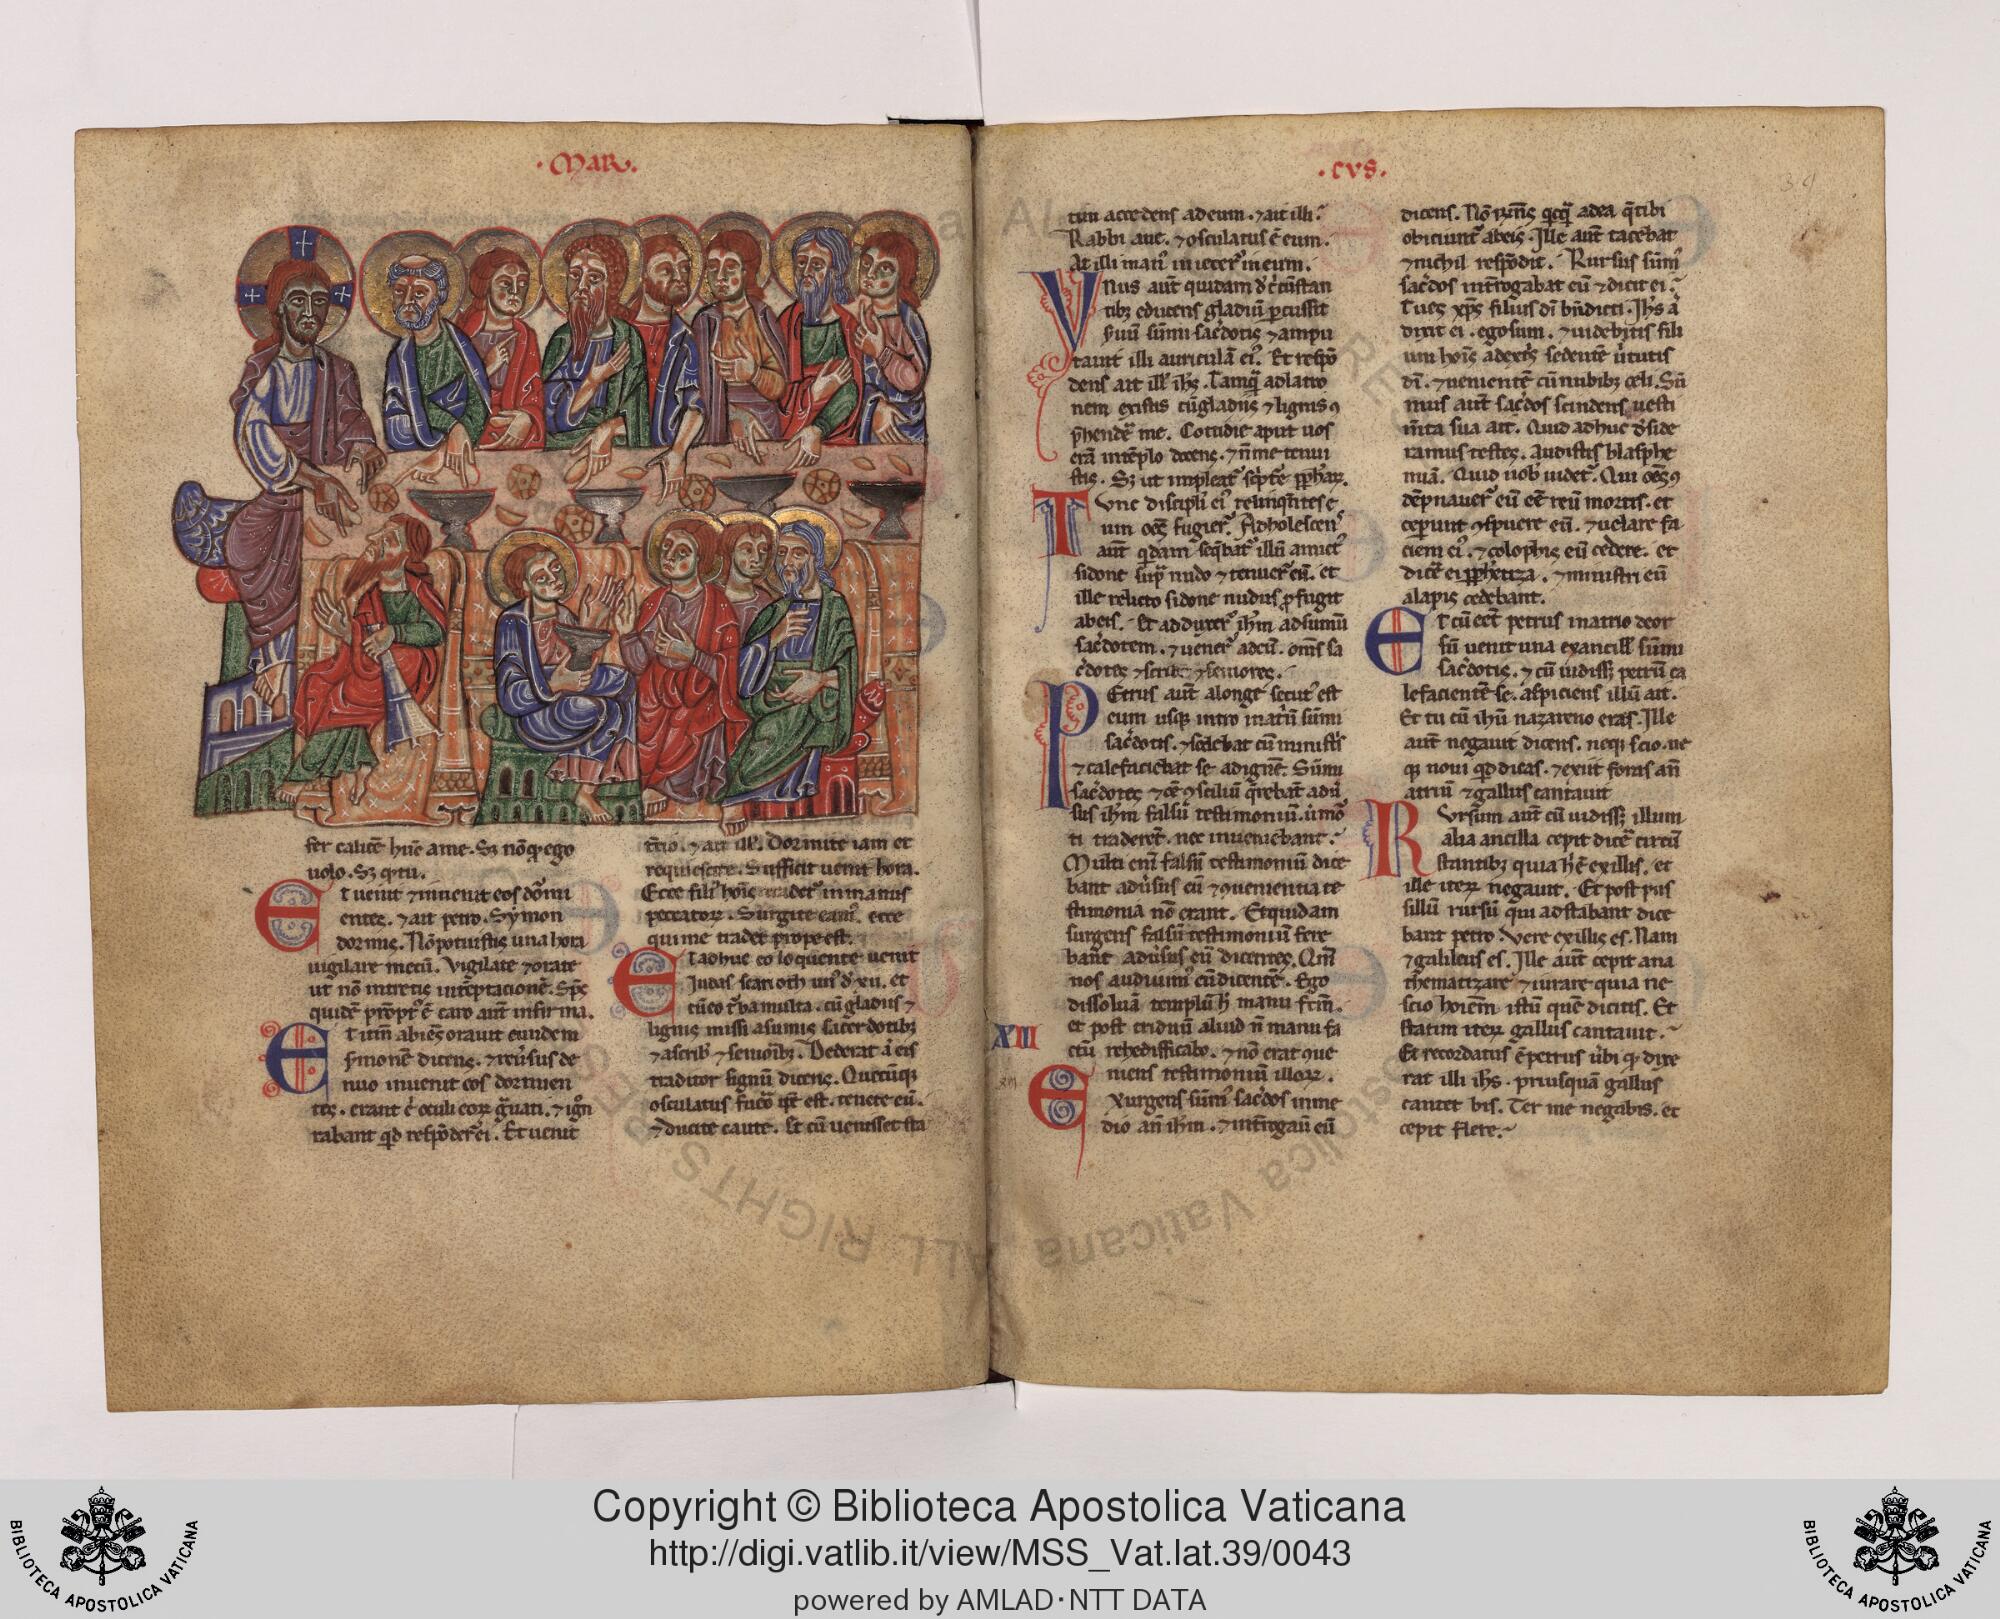 ·MAR·
fer calicē hūc a me. Sꝫ nō qͦ ego
uolo. Sꝫ qͦ tu.
Et uenit ⁊ inuenit eos dōmi
entes. ⁊ ait petro. Symon
dormis. Nō potuistis una hora
uigilare mecū. Vigilate ⁊ orate
ut nō intretis in tēptacionē. Sp̄s
quidē prōptꝰ ē caro aūt infirma.
Et itm̄ abiēs orauit eundem
s̄monē dicens. ⁊ reu̓sus de
nuo inuenit eos dormien
tes. erant e̓ oculi eorꝝ g̓uati. ⁊ ignͦ
rabant qͩ respōder̄ ei. Et uenit
t̓tio. ⁊ ait ill̓. Dormite iam et
requiescite. Sufficit uenit hora.
Ecce filiꝰ hoīs tradetͬ in manus
peccatorꝝ. Surgite eamꝰ. ecce
qui me tradet prope est.
Et adhuc eo loquente uenit
Iudas scarioth unꝰ d̓ xii. et
cū eo t̓ba multa. cū gladiis ⁊
lignis missi a sumis sacerdotibꝫ
⁊ a scribꝫ ⁊ seniorībꝫ. Dederat a̓ eis
traditor signū dicens. Quecūqꝫ
osculatus fuͦo ip̄e est. tenete eū.
⁊ ducite caute. Et cū uenisset sta
·CVS·
34
tim accedens ad eum. ⁊ ait illi.
Rabbi aue. ⁊ osculatus ē eum.
At illi manꝰ iniecerͬ in eum.
Vnus aūt quidam d̓ c̓cūstan
tibꝫ educens gladiū ꝑcussit
s̓uū sūmi sac̓dotis ⁊ ampu
tauit illi auriculā eiꝰ. Et respō
dens ait ill̓ ih̄s. Tamqͣ̄ ad latro
nem existis cū gladiis ⁊ lignis ꝯ
p̄hender̄ me. Cotidie aput uos
erā in tēplo docens. ⁊ n̄ me tenui
stis. Sꝫ ut impleatͬ sc̓pt̓e pp̄harꝝ.
Tunc discipl̓i eiꝰ relinqͣ̄tes e
um oēs fugierͬ. Adholescenͬ
aūt qͥdam seqͣ̄batͬ illū amictꝰ
sidone supͣ nudo ⁊ tenuerͬ eū. et
ille relicto sidone nudus ꝓfugit
ab eis. Et adduxerͬ ih̄m ad sumū
sac̓dotem. ⁊ uenerͬ ad eū. om̄s sa
c̓dotes ⁊ scribe ⁊ seniores.
Petrus aūt a longe secutꝰ est
eum usqꝫ intro in at̓ū sūmi
sac̓dotis. ⁊ sedebat cū minist̓s
⁊ calefaciebat se ad ignē. Sūmi
sac̓dotes ⁊ oē ꝯsciliū qͣ̄rebāt adu̓
sus ih̄m falsū testimoniū. ū mō
ti traderēt. nec inueniebant.
Multi enī falsū testimoniū dice
bant adu̓sus eū ⁊ ꝯuenientia te
stimonia nō erant. Et quidam
surgens falsū testimoniū fere
bāt adu̓sus eū dicentes. Qm̄
nos audiuimꝰ eū dicentē. Ego
dissoluā templū h̄ manu fc̄m.
et post triduū aliud n̄ manu fa
ctū rehedifficabo. ⁊ nō erat ꝯue
niens testimoniū illorꝝ.
XII
Exurgens sūmꝰ sac̓dos in me
dio aīt ih̄m. ⁊ int̓rogaū eū
dicens. Nō r̄ndēs qͥcqͣ̄ ad ea qͣ̄ tibi
obiciuntͬ ab eis. Ille aūt tacebat
⁊ nichil respōdit. Rursus sūmꝰ
sac̓dos int̓rogabat eū ⁊ dicit ei.
Tu es xp̄s filius dī bn̄dicti. Ih̄s a̓
dixit ei. ego sum. ⁊ uidebitis fili
um hoīs a dext̓s sedentē u̓tutis
dī. ⁊ uenientē cū nubibꝫ celi. Sū
mus aūt sac̓dos scindens uesti
m̄ta sua ait. Quid adhuc d̓side
ramus testes. audistis blasphe
miā. Quid uob̓ uidetͬ. Qui oēs ꝯ
dēpnauerͬ eū eē reū mortis. et
ceperunt ꝯspuere eū. ⁊ uelare fa
ciem eiꝰ. ⁊ colophis eū cedere. et
dic̓e ei pp̄hetiza. ⁊ ministri eū
alapis cedebant.
Et cū eēt petrus in atrio deor
sū uenit una ex ancill̓ sūmi
sac̓dotis. ⁊ cū uidissꝫ petrū ca
lefacientē se. aspiciens illū ait.
Et tu cū ih̄u nazareno eras. Ille
aūt negauit dicens. neqꝫ scio. ne
qꝫ noui qͩ dicas. ⁊ exiit foras an̄
atriū ⁊ gallus cantauit
Rursum aūt cū uidissꝫ illum
alia ancilla cepit dic̓e circū
stantibꝫ quia h̓ ē ex illis. et
ille iterꝝ negauit. Et post pus
sillū rursū qui adstabant dice
bant petro. Vere ex illis es. Nam
⁊ galileus es. Ille aūt cepit ana
thematizare ⁊ iurare quia ne
scio hoīem istū quē dicitis. Et
statim iterꝝ gallus cantauit.
Et recordatus ē petrus u̓bi qͩ dixe
rat illi ih̄s. priusquā gallus
cantet bis. Ter me negabis. et
cepit flere.
Copyright © Biblioteca Apostolica Vaticana
http://digi.vatlib.it/view/MSS_Vat.lat.39/0043
powered by AMLAD·NTT DATA
BIBLIOTECA APOSTOLICA VATICANA
BIBLIOTECA APOSTOLICA VATICANA